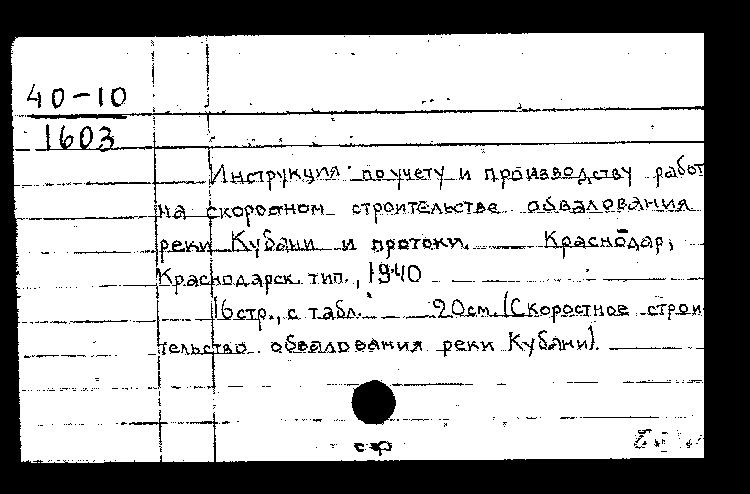 40-10
1603
Инструкция по учету и производству работ
на скоростном строительстве обвалования
реки Кубани и протоки. Краснодар,
Краснодарск. тип., 1940
16стр., с табл. 20см. (Скоростное строи-
тельство обвалования реки Кубани).